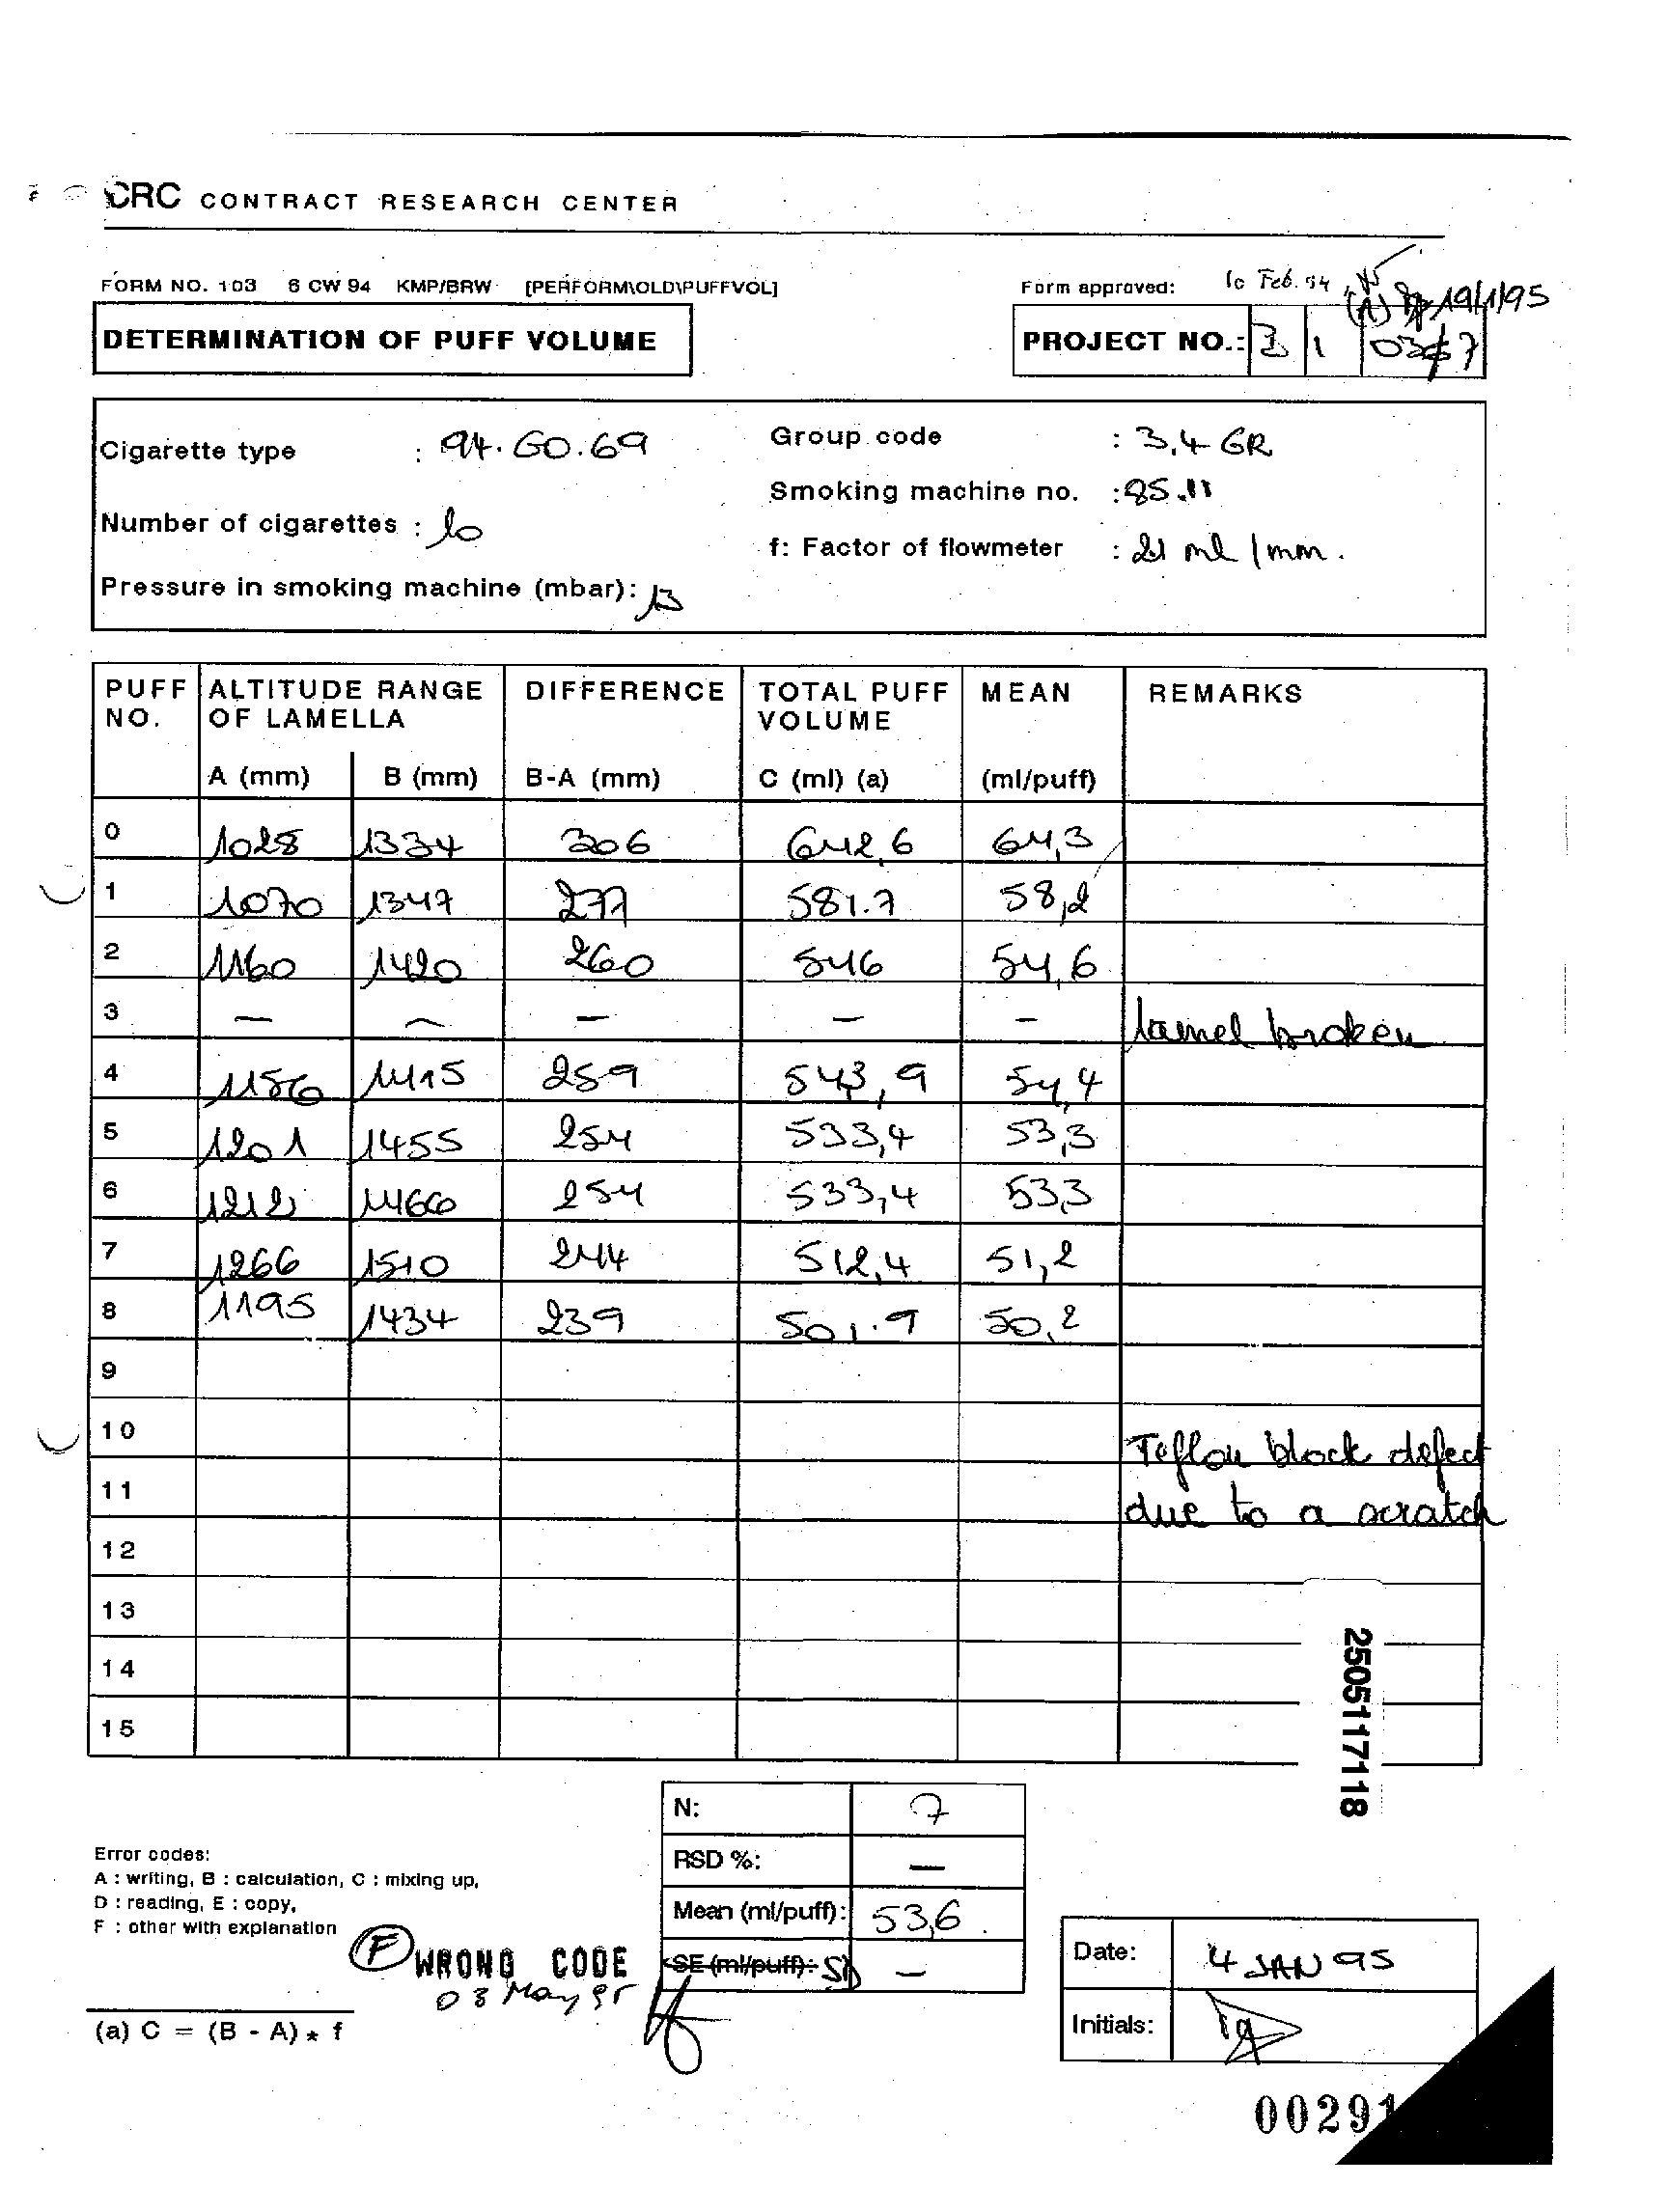 CRC CONTRACT RESEARCH CENTER
FORM NO. 103 6 CW 94 KMP/BRW [PERFORM\OLD\PUFFVOL]
Form approved: 10 Feb. 94
(A) 19/1/95
DETERMINATION OF PUFF VOLUME
PROJECT NO.: 3 1
Cigarette type : 94.GO.69
Group code : 3.4 GR
Smoking machine no. : 85.11
Number of cigarettes : 10
f: Factor of flowmeter : 2,1 ml / mm.
Pressure in smoking machine (mbar): 13
PUFF NO. ALTITUDE RANGE OF LAMELLA DIFFERENCE TOTAL PUFF VOLUME MEAN REMARKS
A (mm) B (mm) B-A (mm) C (ml) (a) (ml/puff)
0 1028 1334 306 642,6 64,3
1 1070 1347 277 581.7 58,2
2 1160 1420 260 546 54,6
3 — — — — — lamel broken
4 1156 1415 259 543,9 54,4
5 1201 1455 254 533,4 53,3
6 1212 1466 254 533,4 53,3
7 1266 1510 244 512,4 51,2
8 1195 1434 239 501.9 50,2
9
10 Teflon block defect
11 due to a scratch
12
13
14
15
2505117118
N: 7
RSD %: —
Mean (ml/puff): 53,6
SE (ml/puff): SD —
Error codes:
A : writing, B : calculation, C : mixing up,
D : reading, E : copy,
F : other with explanation
(F) WRONG CODE
03 May 95
Date: 4 JAN 95
Initials:
(a) C = (B - A) * f
00291